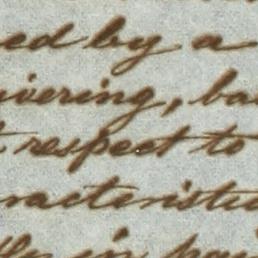 ed by a
ivering, ba
respect to
racteristi
in